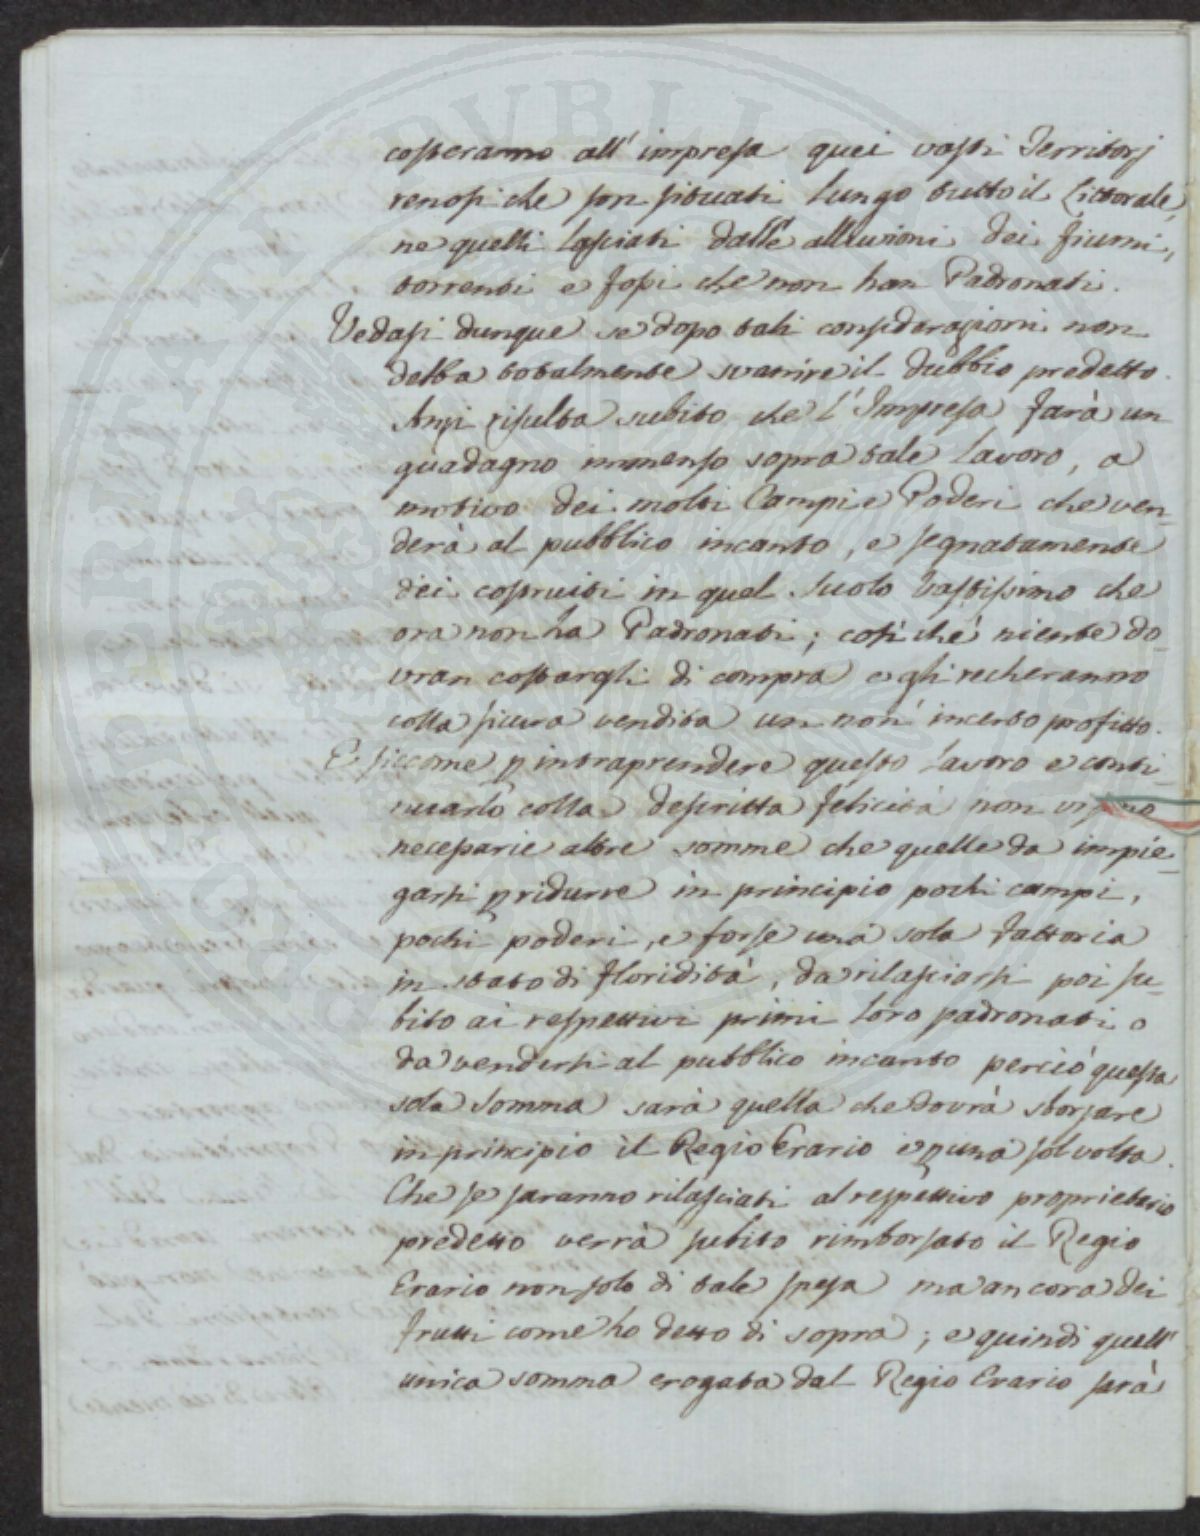 costeranno all' impresa quei vasti Territorj
renosi che son situati lungo tutto il Littorale,
ne quelli lasciati dalle alluvioni dei fiumi,
torrenti e fossi che non han Padronati.
Vedasi dunque se dopo tali considerazioni non
debba totalmente svanire il dubbio predetto.
Anzi risulta subito che l' Impresa farà un
guadagno immenso sopra tale lavoro, a
motivo dei molti Campi e Poderi che ven-
derà al pubblico incanto, e segnatamente
dei costruiti in quel suolo vastissimo che
ora non ha Padronati; così che niente do-
vran costargli di compra e gli recheranno
colla sicura vendita un non incerto profitto.
E siccome p intraprendere questo lavoro e conti-
nuarlo colla descritta felicità non vi sono
necessarie altre somme che quelle da impie-
garsi p ridurre in principio pochi campi,
pochi poderi, e forse una sola fattoria
in stato di floridità, da rilasciarsi poi su-
bito ai respettivi primi loro padronati o
da vendersi al pubblico incanto perciò questa
sola somma sarà quella che dovrà sborsare
in principio il Regio Erario e p una sol volta.
Che se saranno rilasciati al respettivo proprietario
predetto verrà subito rimborsato il Regio
Erario non solo di tale spesa ma ancora dei
frutti come ho detto di sopra; e quindi quell'
unica somma erogata dal Regio Erario sarà